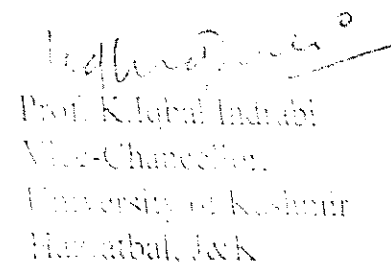 Prof. K.Iqbal Indrabi
Vice-Chancellor,
University of Kashmir
Hazratbal, J&K